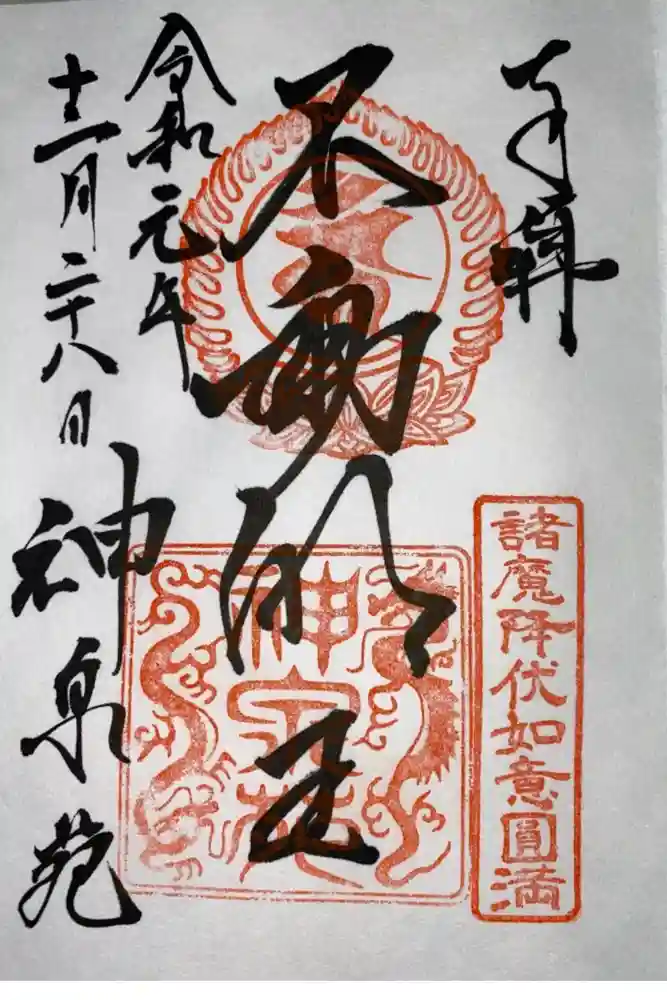 奉拝
諸魔降伏如意圓満
不動明王
神泉苑
令和元年
十二月二十八日
神泉苑